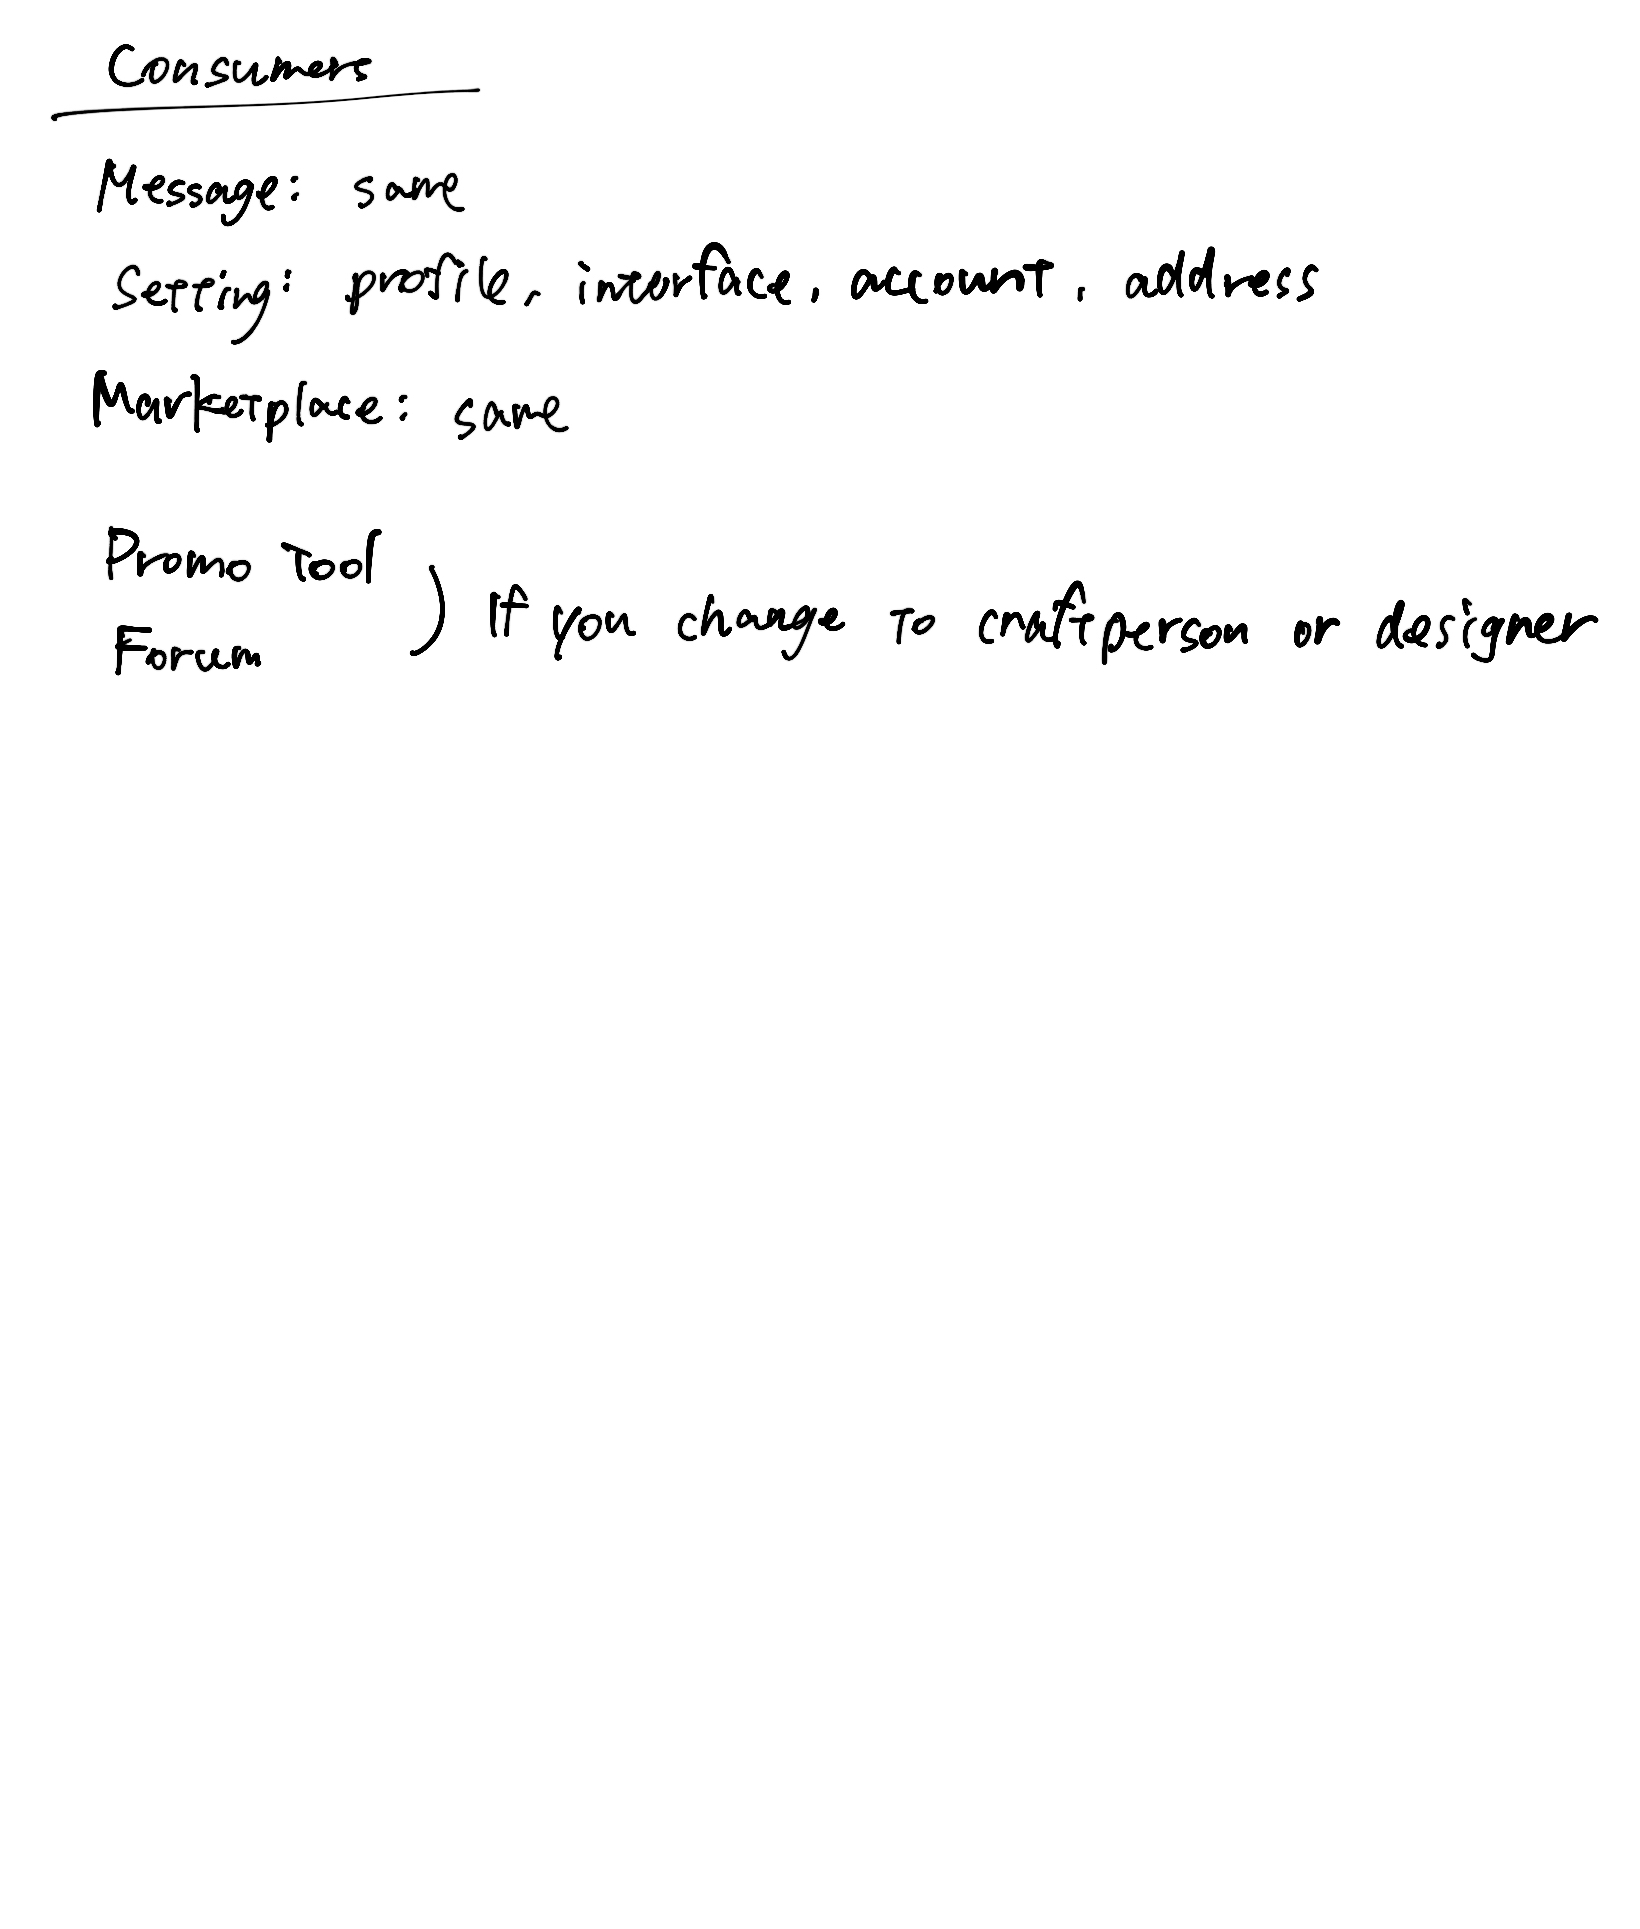 Consumers
Message: same
Setting: profile, interface, account, address
Marketplace: same
Promo Tool
Forum
) If you change to craftperson or designer